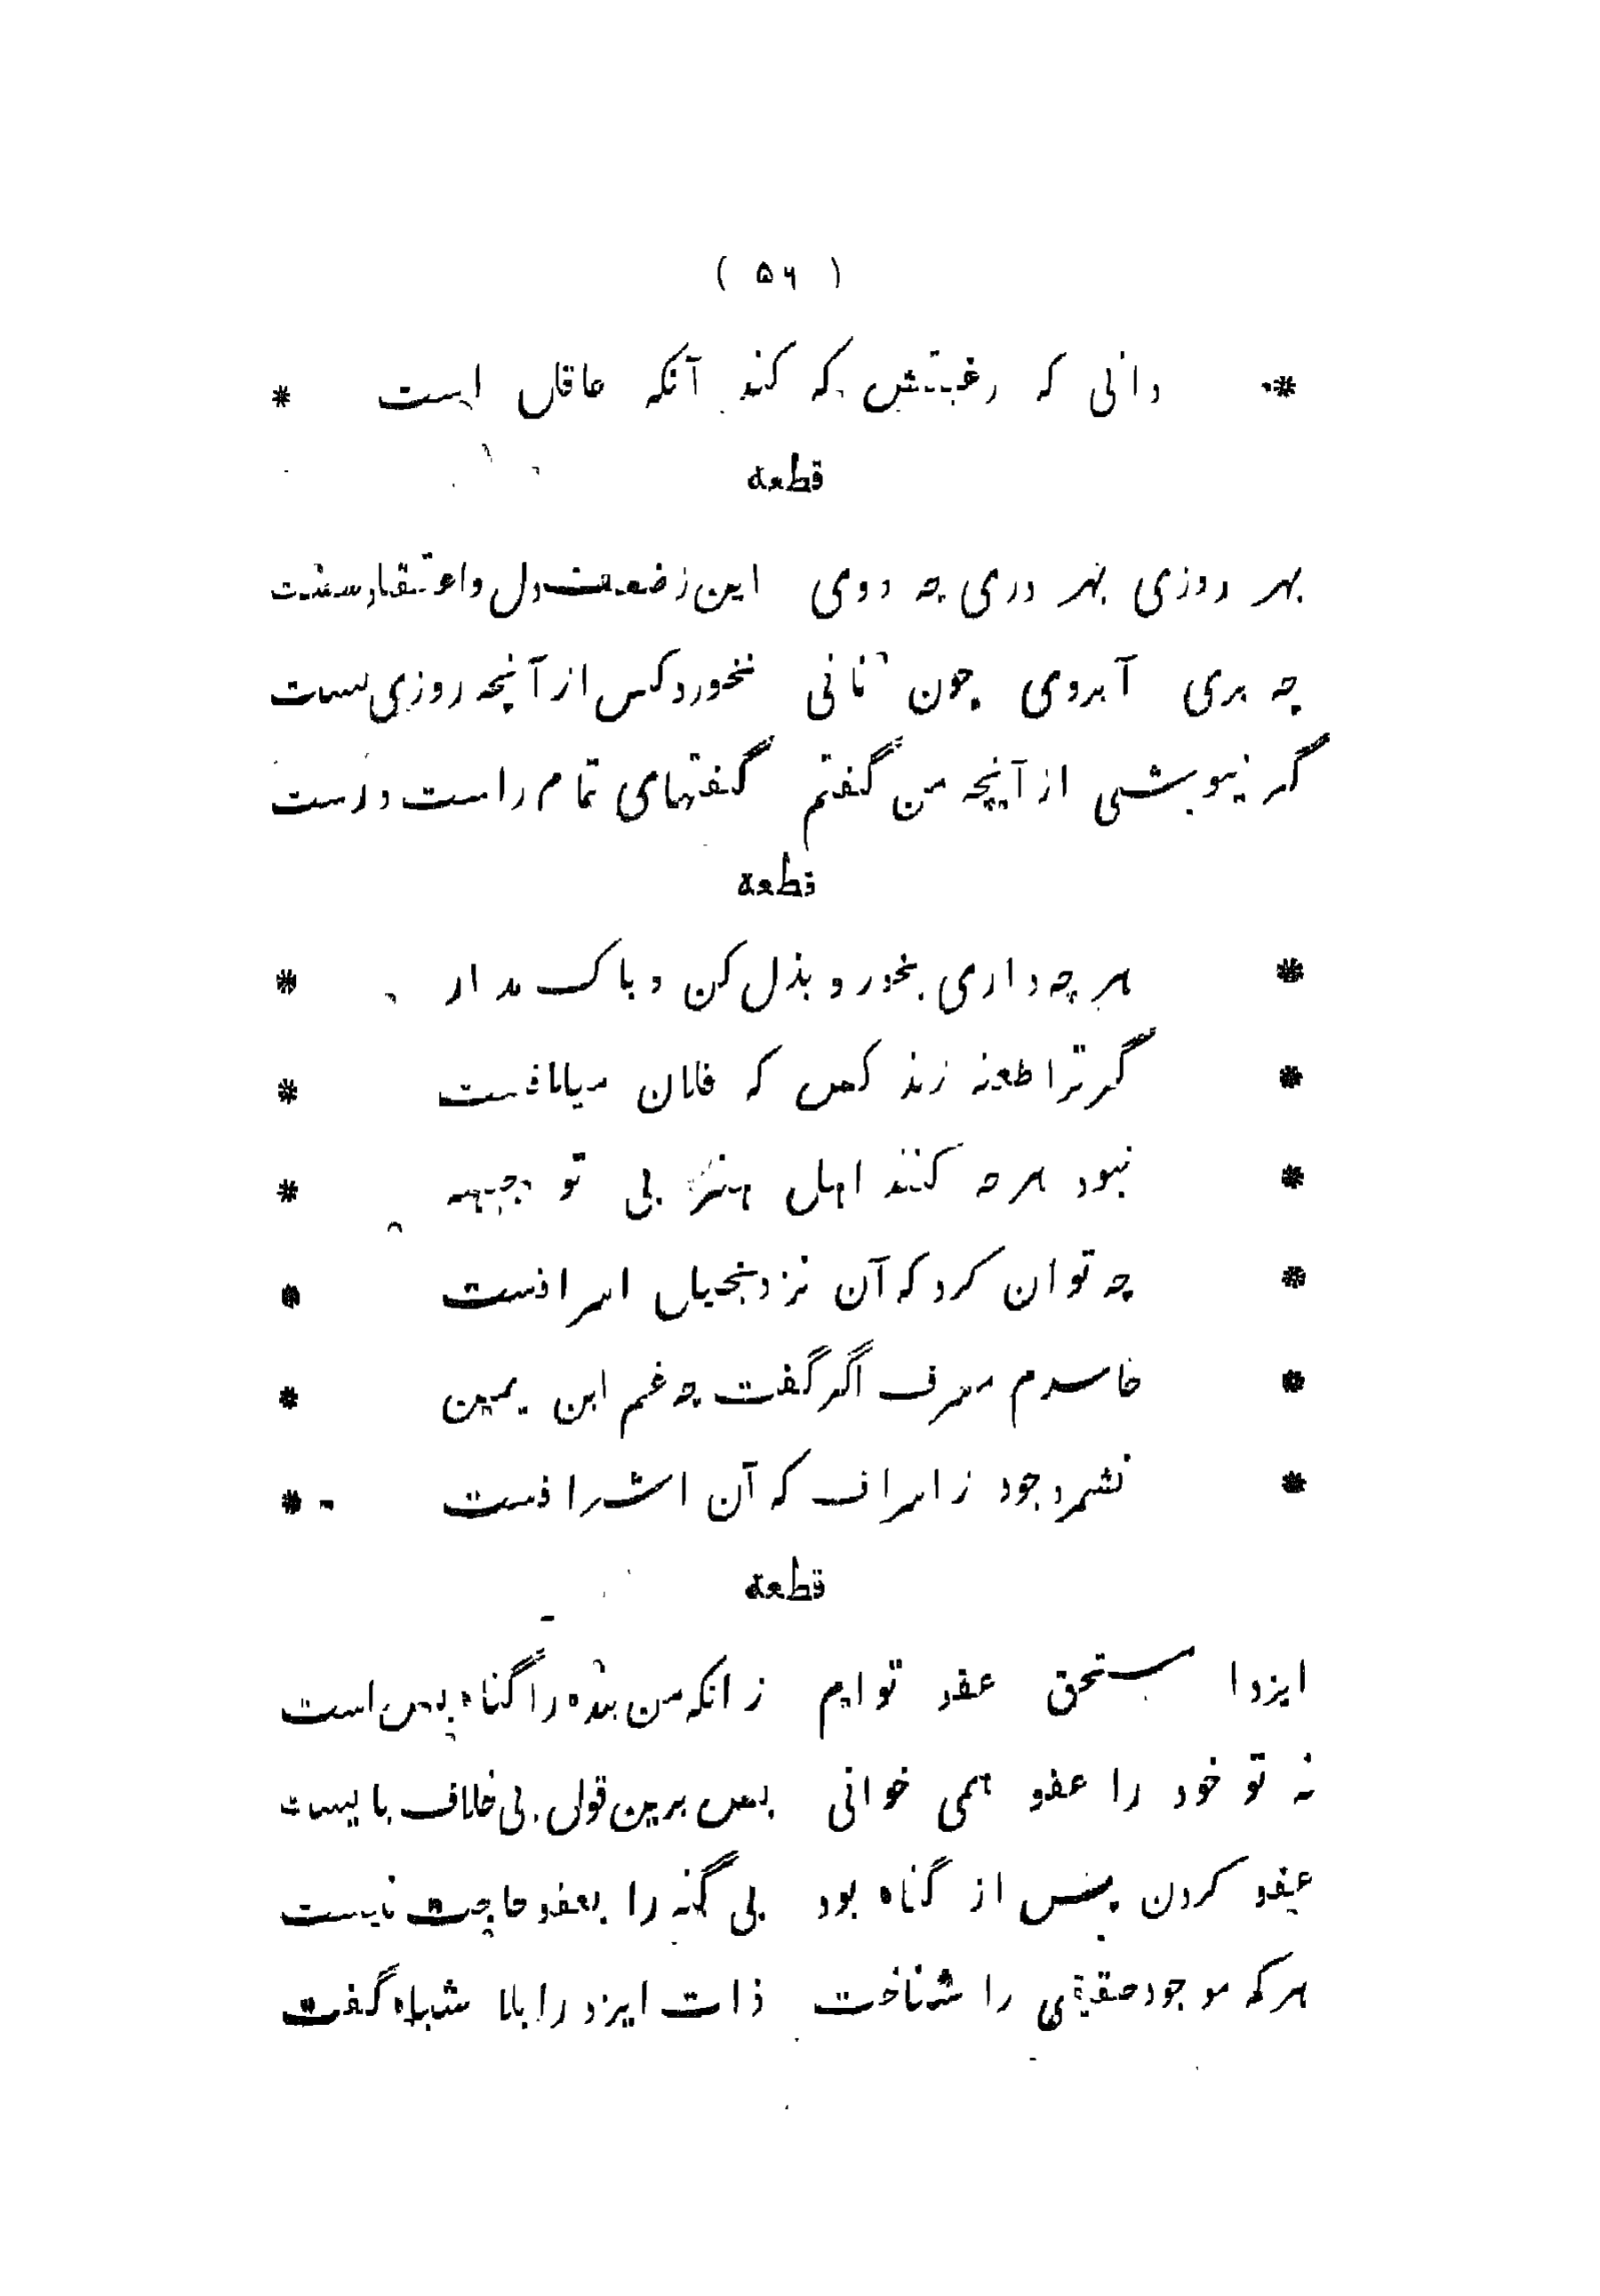 ( ۵۶ )
* دانی که رغبتش که کند آنکه عاقل است *
قطعه
بهر روزی بهر دری چه دوی این ز ضعف دل و اعتقاد سست
چه بری آبروی چون نانی نخورد کس از آنچه روزی تست
گر نیوشی از آنچه من گفتم گفتهای تمام راست درست
قطعه
* هر چه داری بخور و بذل کن و باک مدار *
* گر ترا طعنه زند کس که فلان میلافست *
* نبود هر چه کنند اهل هنر بی توجیه *
* چه توان کرد که آن نزد بخیل اسرافست *
* حاسدم مسرف اگر گفت چه غم ابن یمین *
* نشمرد جود ز اسراف که آن اشرافست *
قطعه
ایزدا مستحق عفو توایم زانکه من بنده را گناه بس است
نه تو خود را عفو همی خوانی پس برین قول بی خلاف بایست
عفو کردن پس از گناه بود بی گنه را بعفو حاجت نیست
هر که موجود حقیقی را شناخت ذات ایزد را بلا شباه گفت